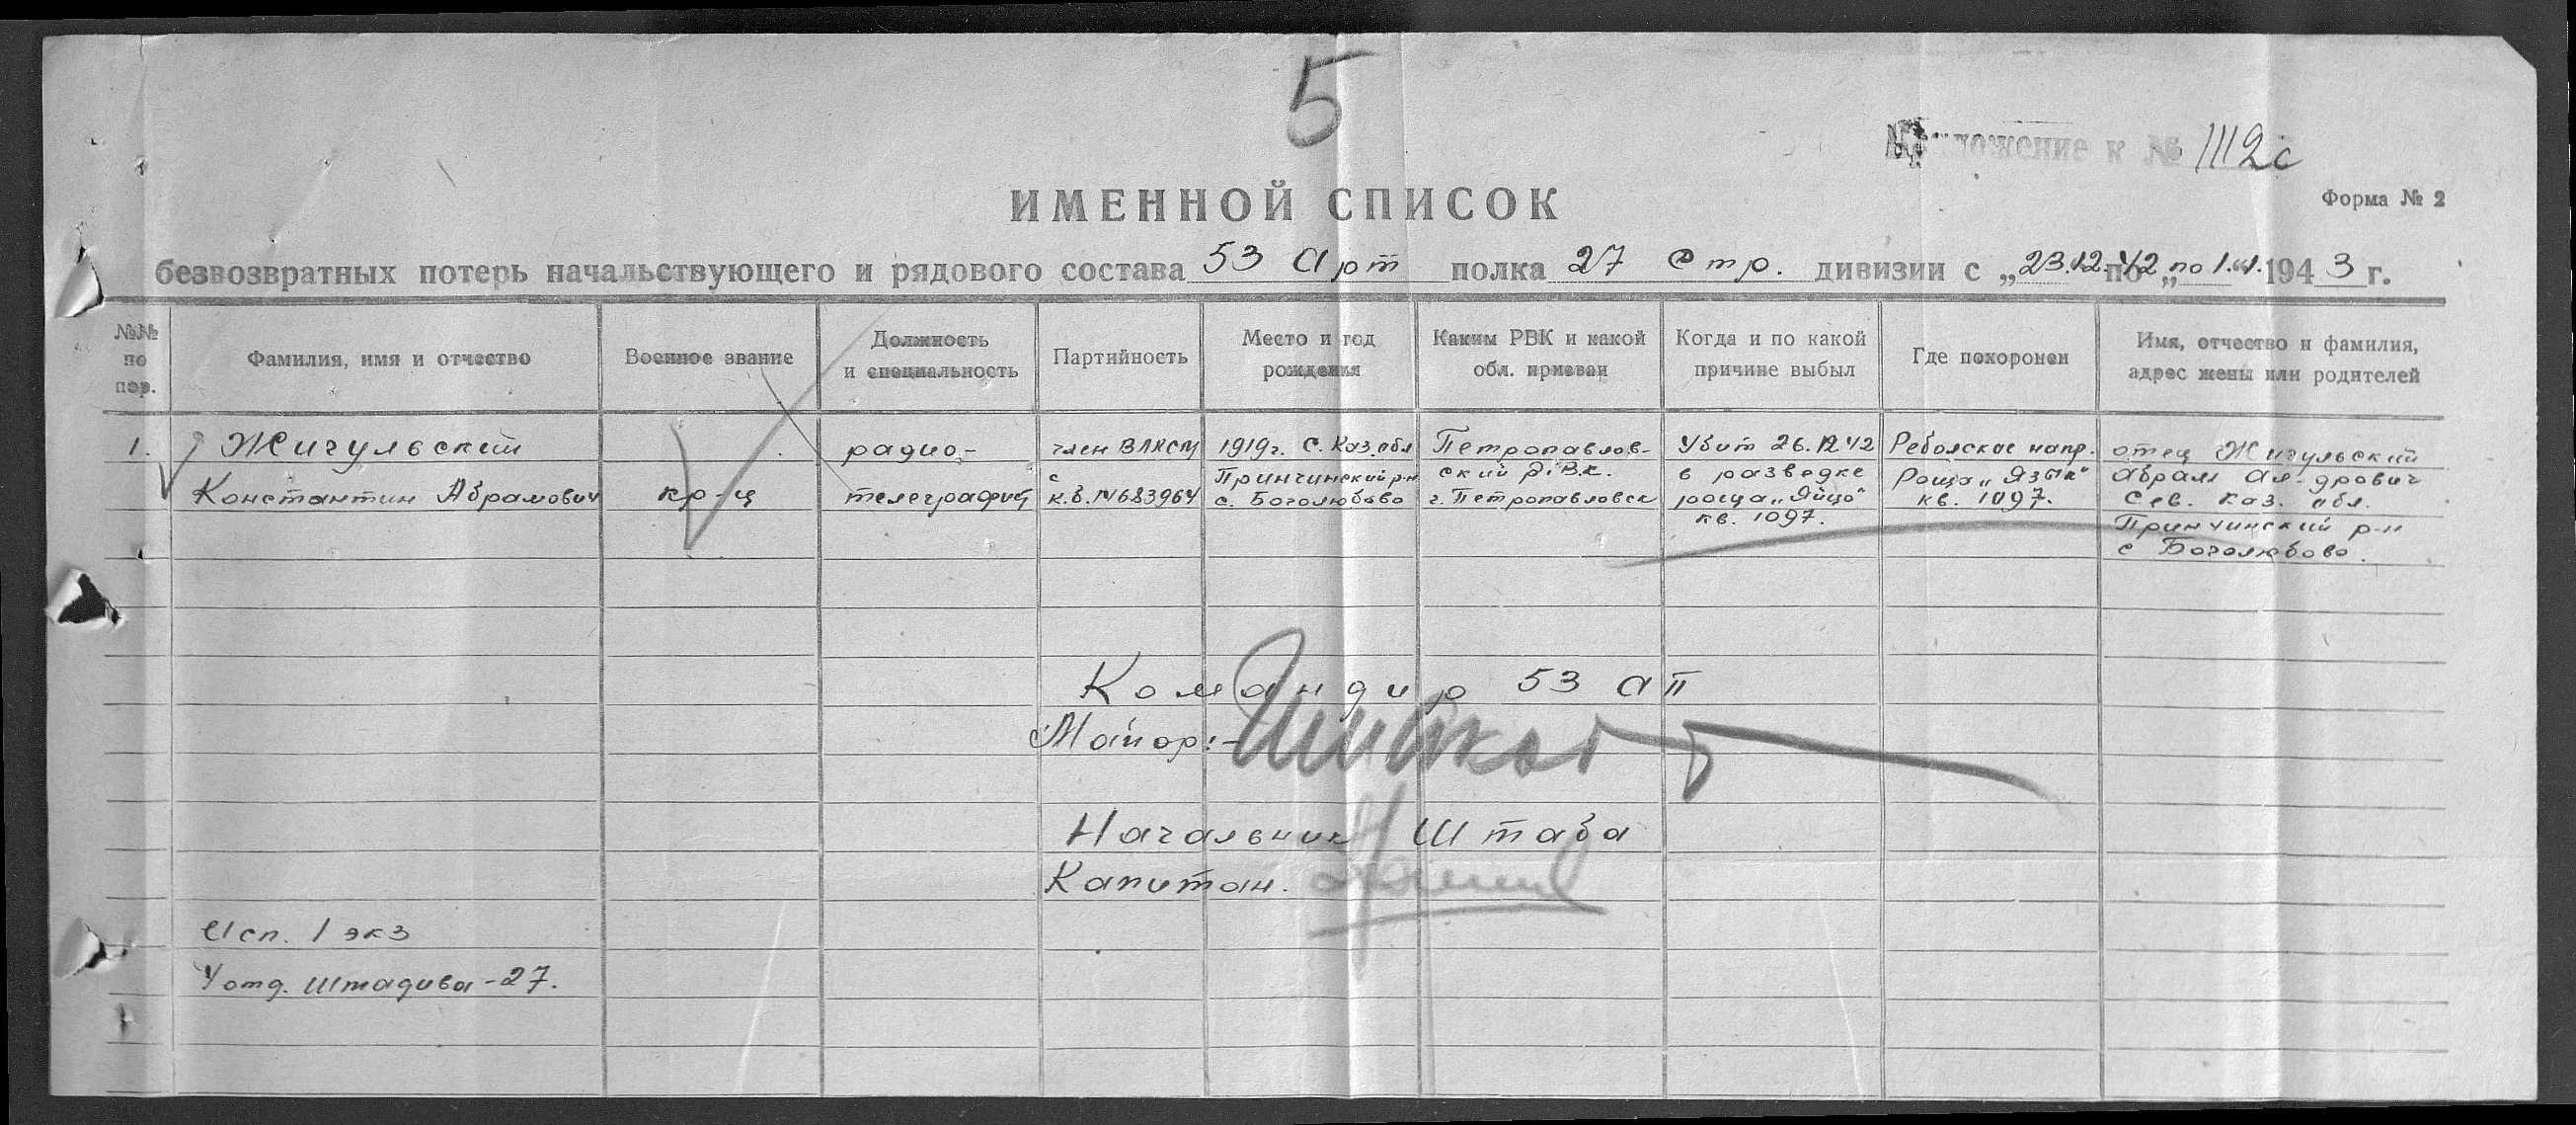 5
Приложение к № 1112с
ИМЕННОЙ СПИСОК
Форма № 2
безвозвратных потерь начальствующего и рядового состава 53 Арт полка 27 Стр. дивизии с „23.12.42 по „по 1.1. 1943 г.
№№ по пор.
Фамилия, имя и отчество
Военное звание
Должность
и специальность
Партийность
Место и год
рождения
Каким РВК и какой
обл. призван
Когда и по какой
причине выбыл
Где похоронен
Имя, отчество и фамилия,
адрес жены или родителей
1.
Жигульский
Константин Абрамович
кр-ц
радио-
телеграфист
член ВЛКСМ
с
к.б. 14683964
1919г. С. Каз. обл
Принчинский р-н
с. Боголюбово
Петропавлов-
ский РВК.
г. Петропавловск
Убит 26.12.42
в разведке
роща „Яйцо"
кв. 1097.
Ребольское напр.
Роща „Язык"
кв. 1097.
отец Жигульский
Абрам Ал-дрович
Сев. Каз. обл.
Принчинский р-н
с Боголюбово.
Командир 53 АП
Майор:-
Начальник Штаба
Капитан.
Исп. 1 экз
4 отд. Штадива-27.